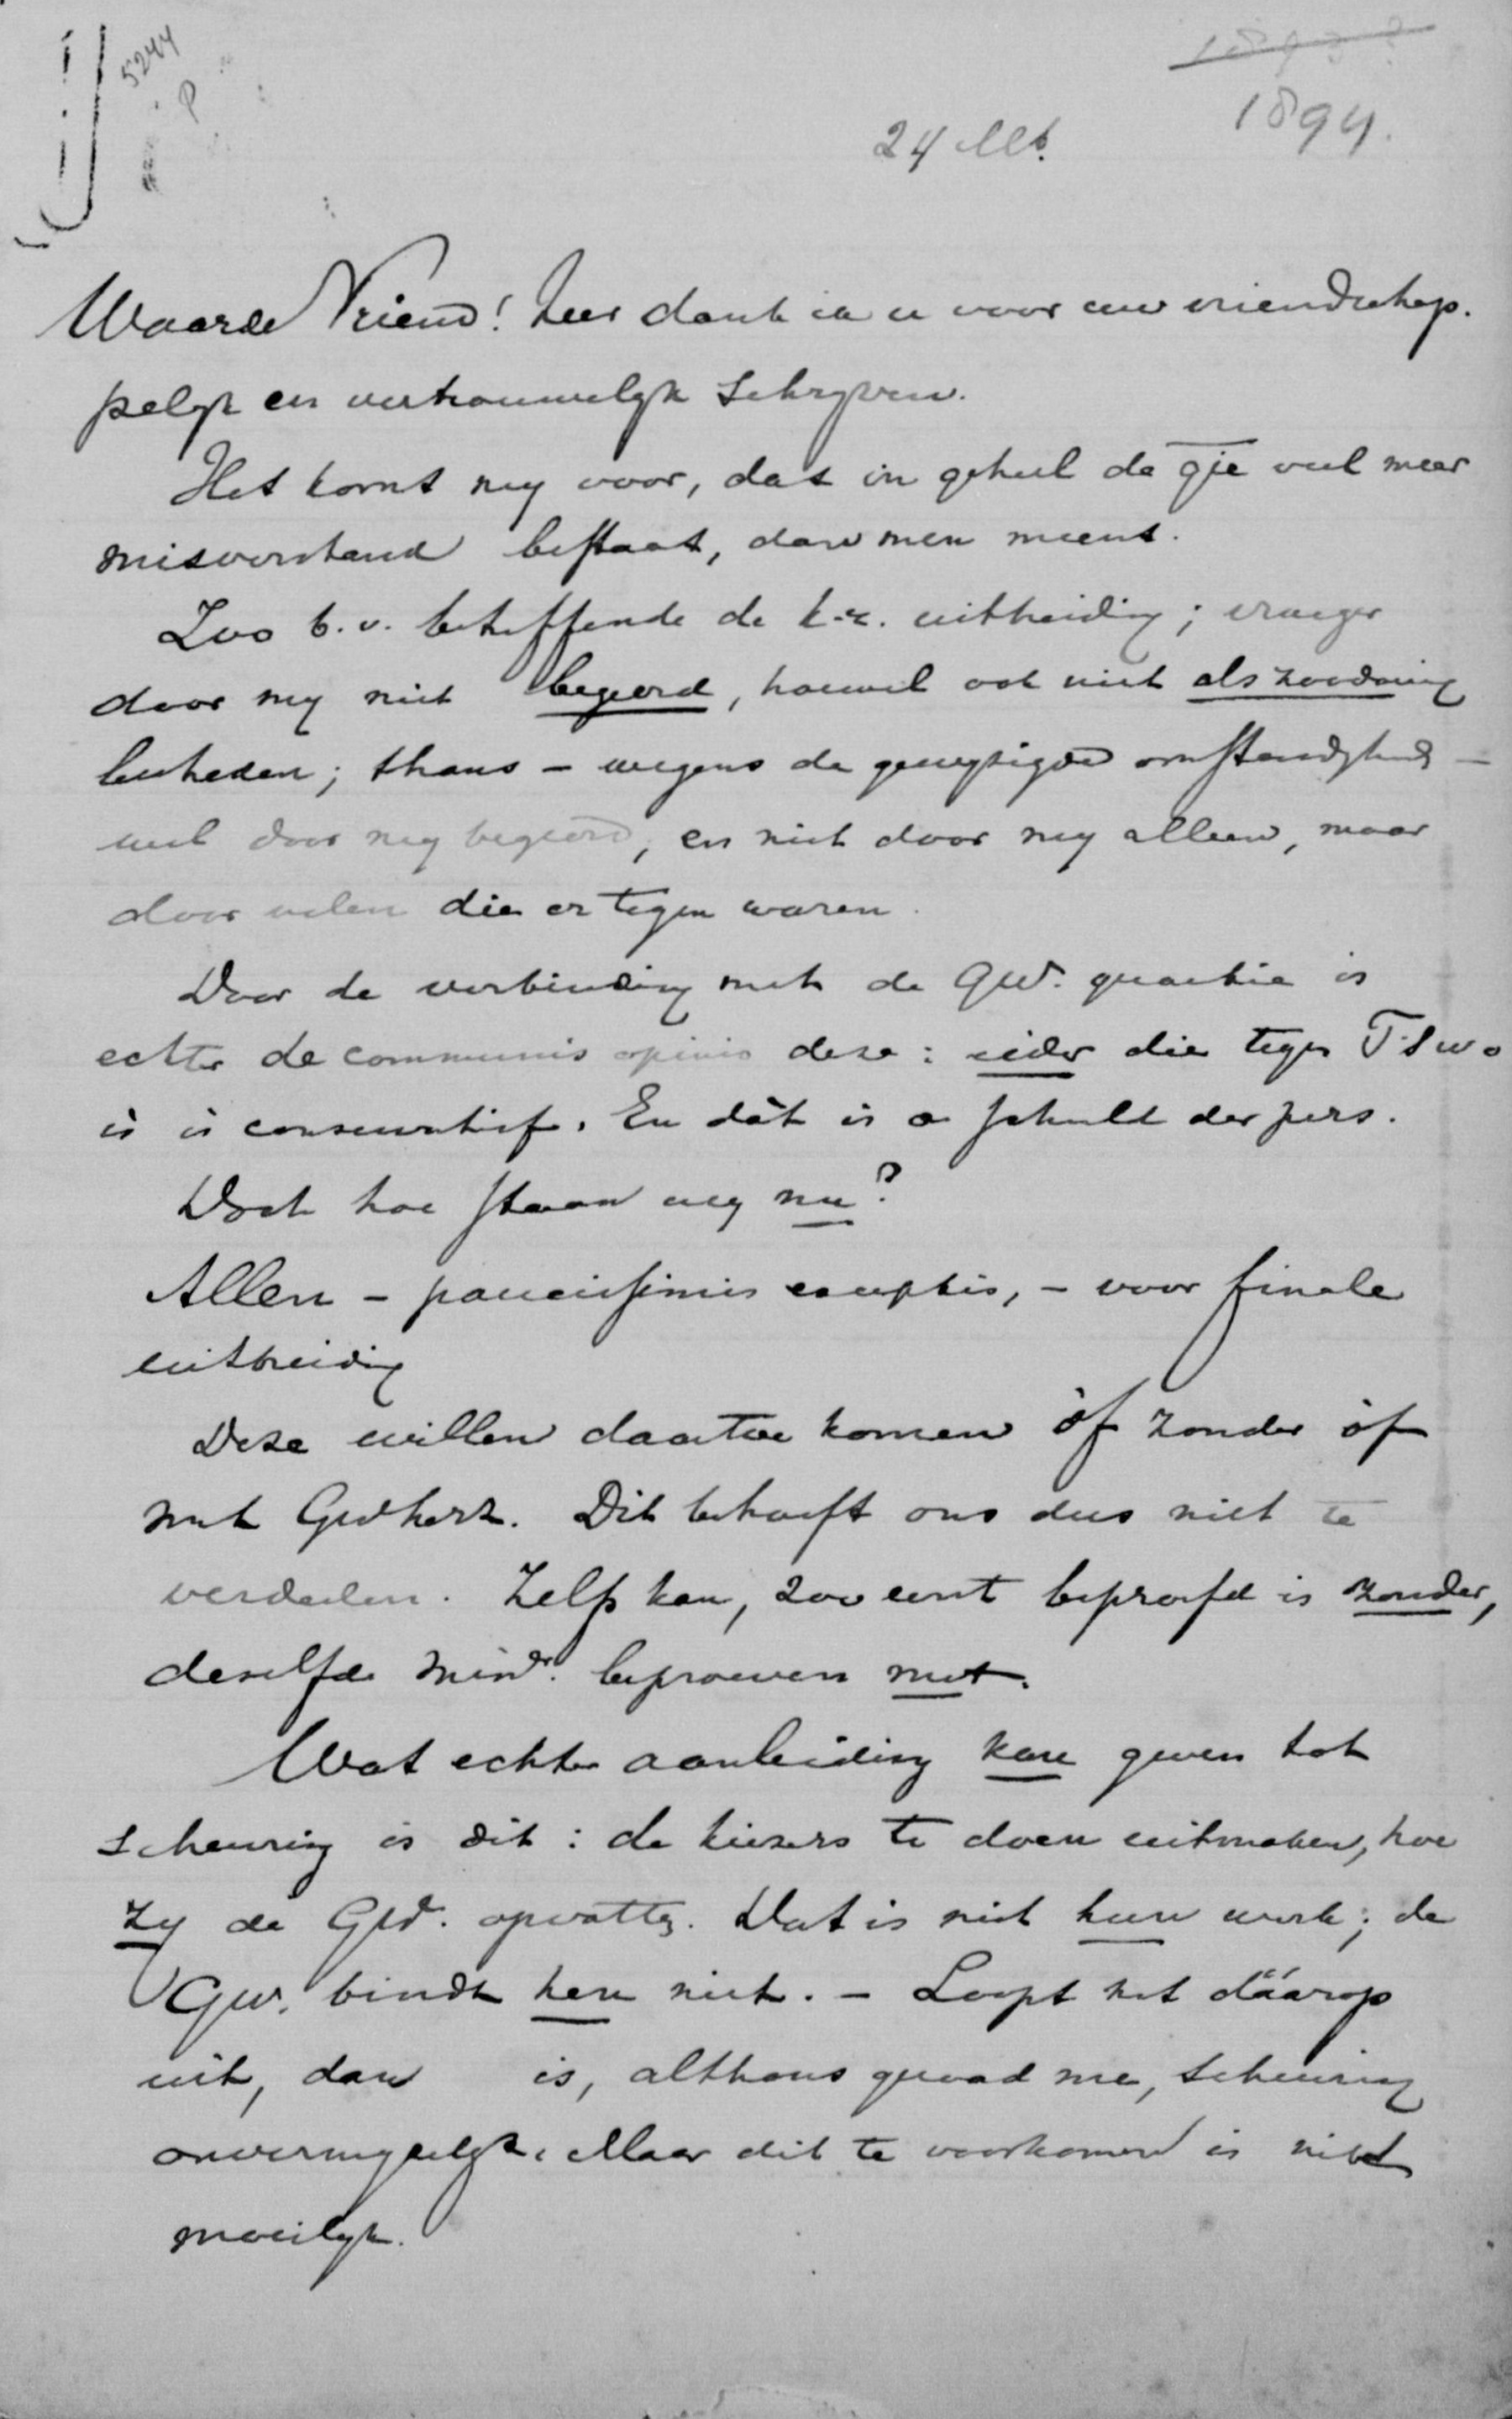 5244
P
1894.
24 Mt.
Waarde Vriend! Zeer dank ik u voor uw vriendschap-
pelijk en vertrouwelijk schrijven.
Het komt my voor, dat in geheel de qie veel meer
misverstand bestaat, dan men meent.
Zoo b.v. betreffende de k.r. uitbreiding; vroeger
door my niet begeerd, hoewel ook niet als zoodanig
bestreden; thans – wegens de gewyzigde omstandighd –
wel door my begeerd, en niet door my alleen, maar
door velen die er tegen waren.
Door de verbinding met de Gw. quaestie is
echter de communis opinio deze: ieder die tegen T. is
is conservatief. En dàt is de schuld der pers.
Doch hoe staan wy nu?
Allen – paucissimis exceptis, – voor finale
uitbreiding
Deze willen daartoe komen òf zonder òf
met Gwherz. Dit behoeft ons dus niet te
verdeelen. Zelfs kan, zoo eerst beproefd is zonder,
dezelfde minr. beproeven met.
Wat echter aanleiding kan geven tot
scheuring is dit: de kiezers te doen uitmaken, hoe
zy de Gw. opvatten. Dat is niet hun werk; de
Gw. bindt hen niet. – Loopt het dáárop
uit, dan is, althans quoad me, scheuring
onvermydelyk. Maar dit te voorkomen is niet
moeilyk.